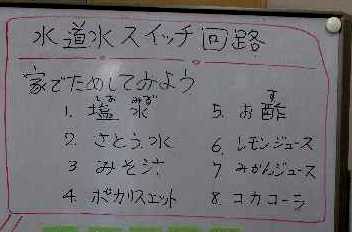 水道水スイッチ回路
家でためしてみよう
1. 塩水 しお みず
2. さとう水
3 みそ汁
4. ポカリスエット
5. お酢 す
6. レモンジュース
7. みかんジュース
8. コカコーラ